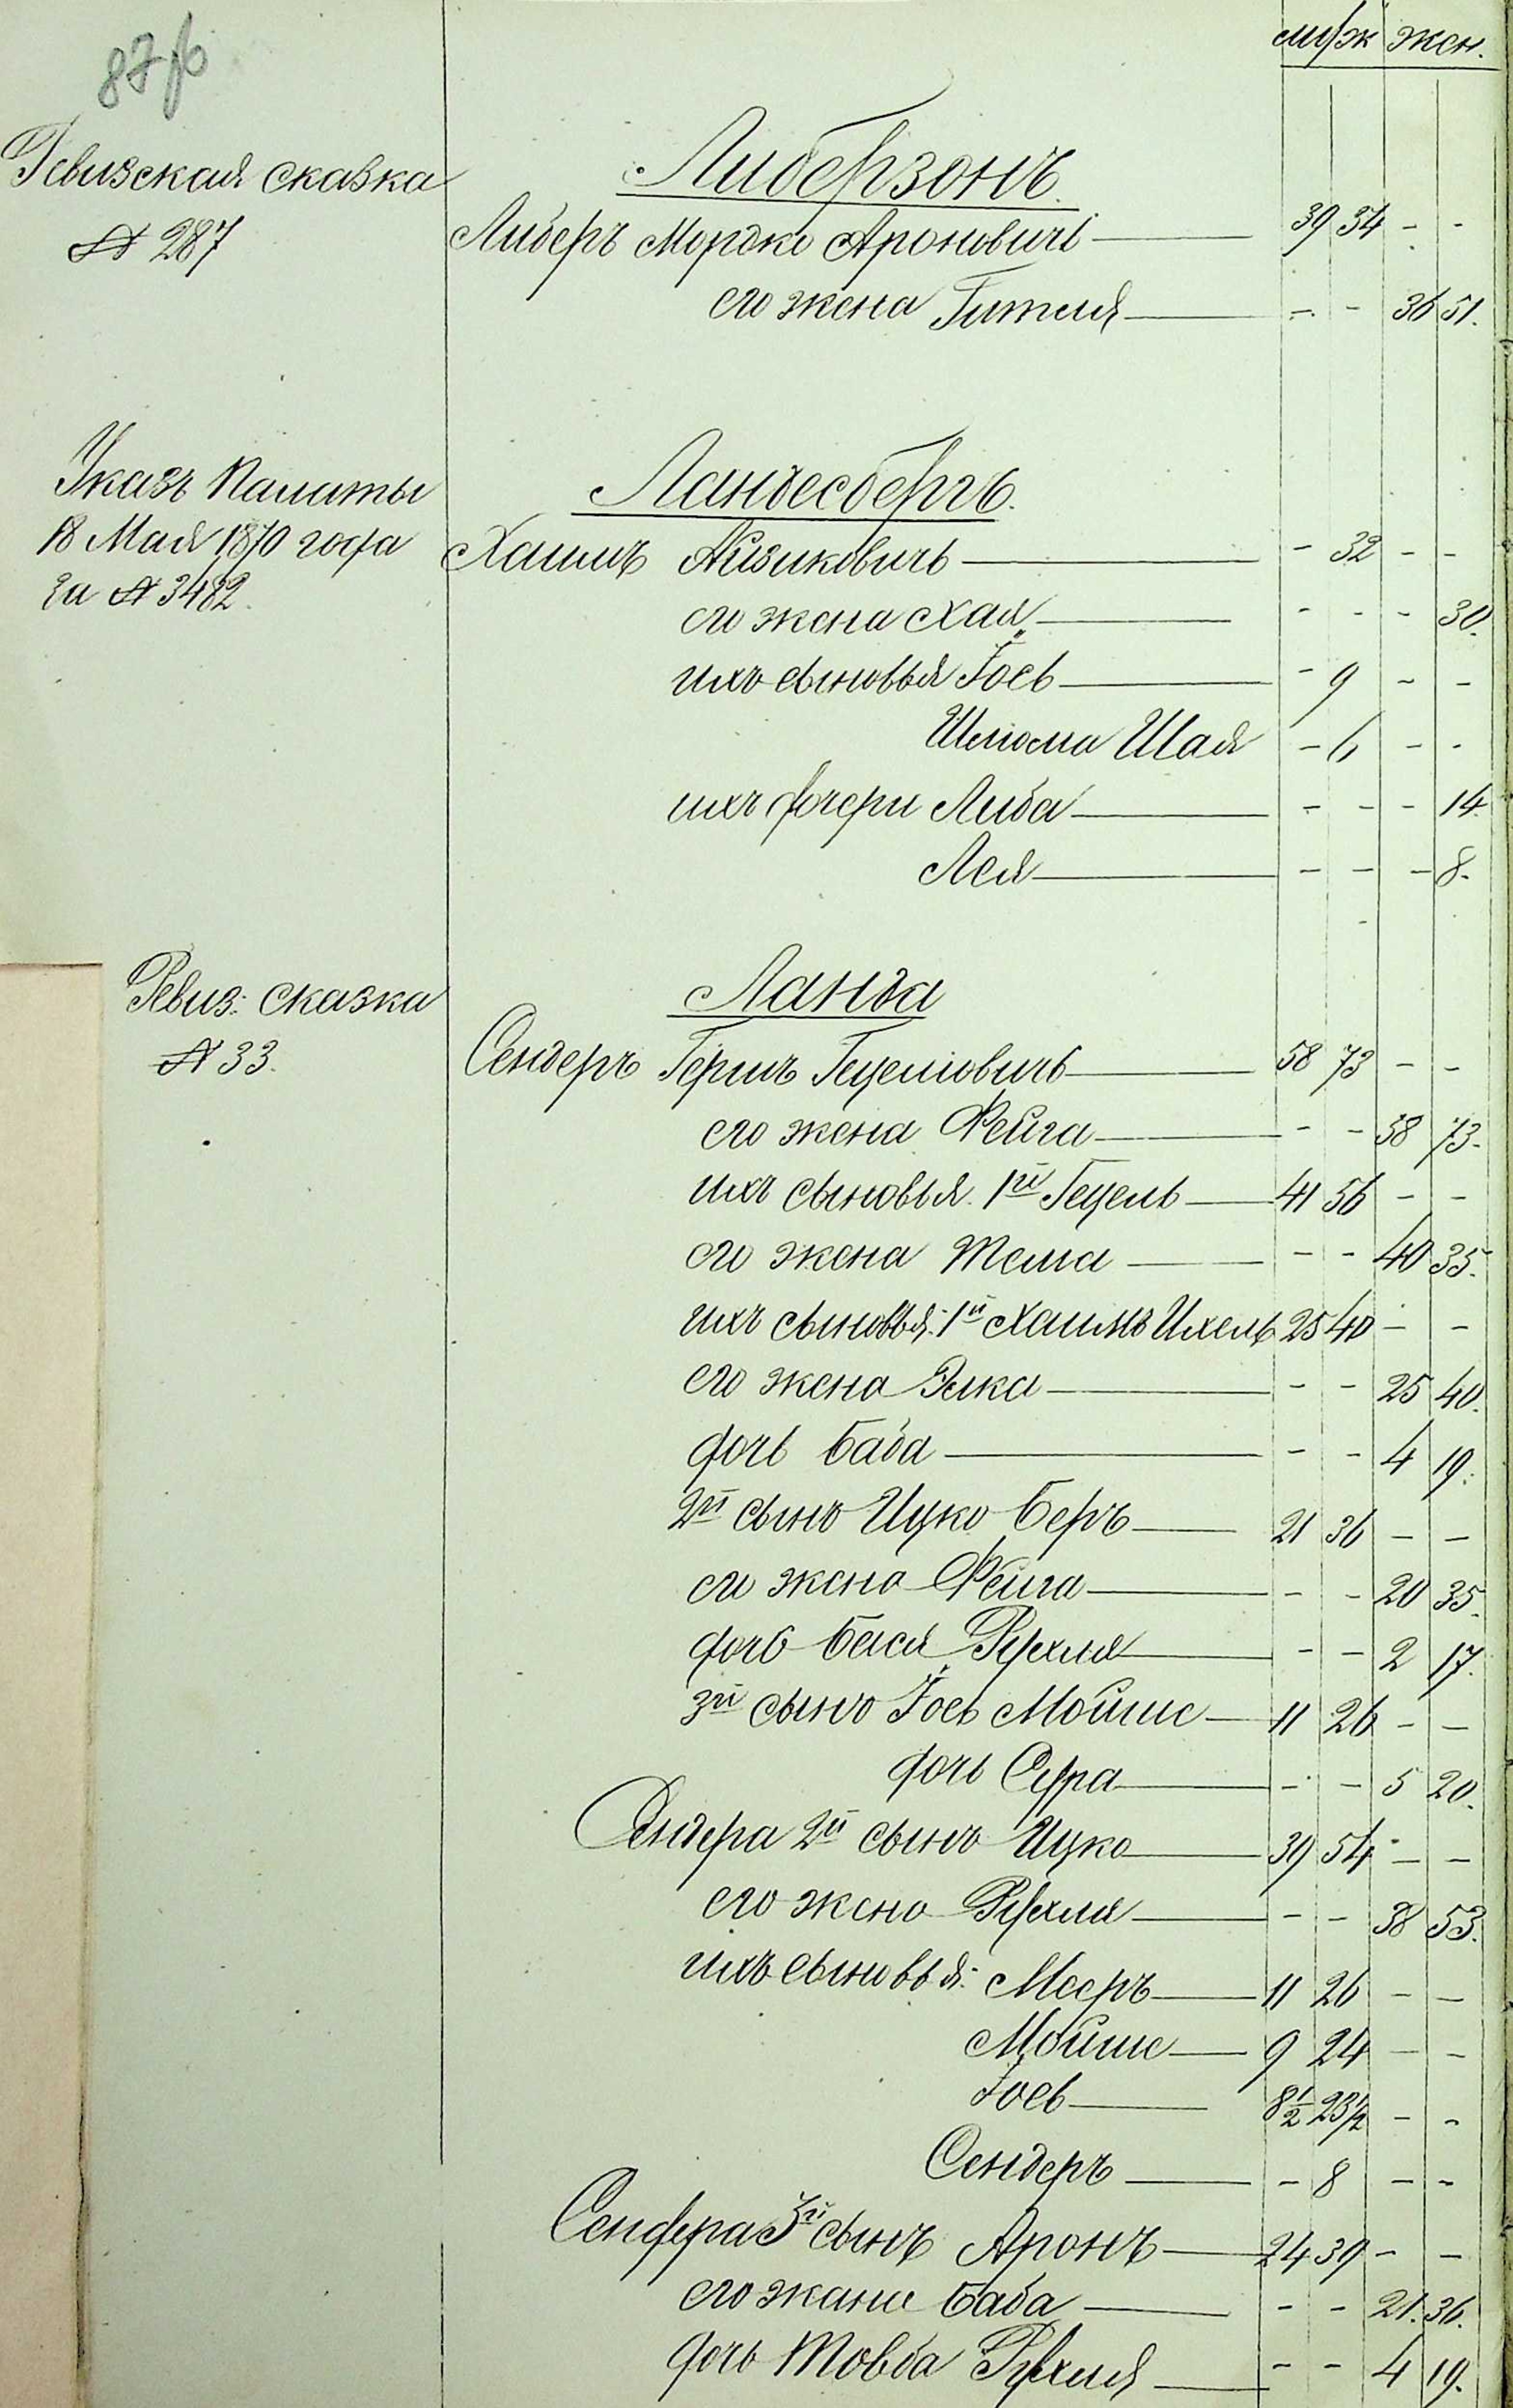 87 об
муж жен.
Ревизская сказка
№ 287
Либерзонъ.
Либеръ Мордко Ароновичъ — 39 34 - -
его жена Гителя — - - 36 51.
Указъ Палаты
18 Мая 1870 года
за № 3482.
Ландесбергъ.
Хаимъ Айзиковичъ — - 32 - -
его жена Хая — - - - 30.
ихъ сыновья Іосъ — - 9 - -
Шлюома Шая - 6 - -
ихъ дочери Либа — - - - 14.
Лея — - - - 8.
Ревиз: сказка
№ 33.
Ланда
Сендеръ Гершъ Гецелювичъ — 58 73 - -
его жена Фейга — - - 58 73.
ихъ сыновья 1й Гецель — 41 56 - -
его жена Тема — - - 40 35.
ихъ сыновья: 1й Хаимъ Ихель 25 40 - -
его жена Элка — - - 25 40.
дочь Баба — - - 4 19.
2й сынъ Ицко Беръ — 21 36 - -
его жена Фейга — - - 20 35.
дочь Бася Рухля — - - 2 17.
3й сынъ Іось Мойше — 11 26 - -
дочь Сура — - - 5 20.
Сендера 2й сынъ Ицко — 39 54 - -
его жена Рухля — - - 38 53.
ихъ сыновья: Мееръ — 11 26 - -
Мойше — 9 24 - -
Іось — 8½ 23½ - -
Сендеръ — - 8 - -
Сендера 3й сынъ Аронъ — 24 39 - -
его жана Баба — - - 21. 36.
дочь Товба Рухля — - - 4 19.